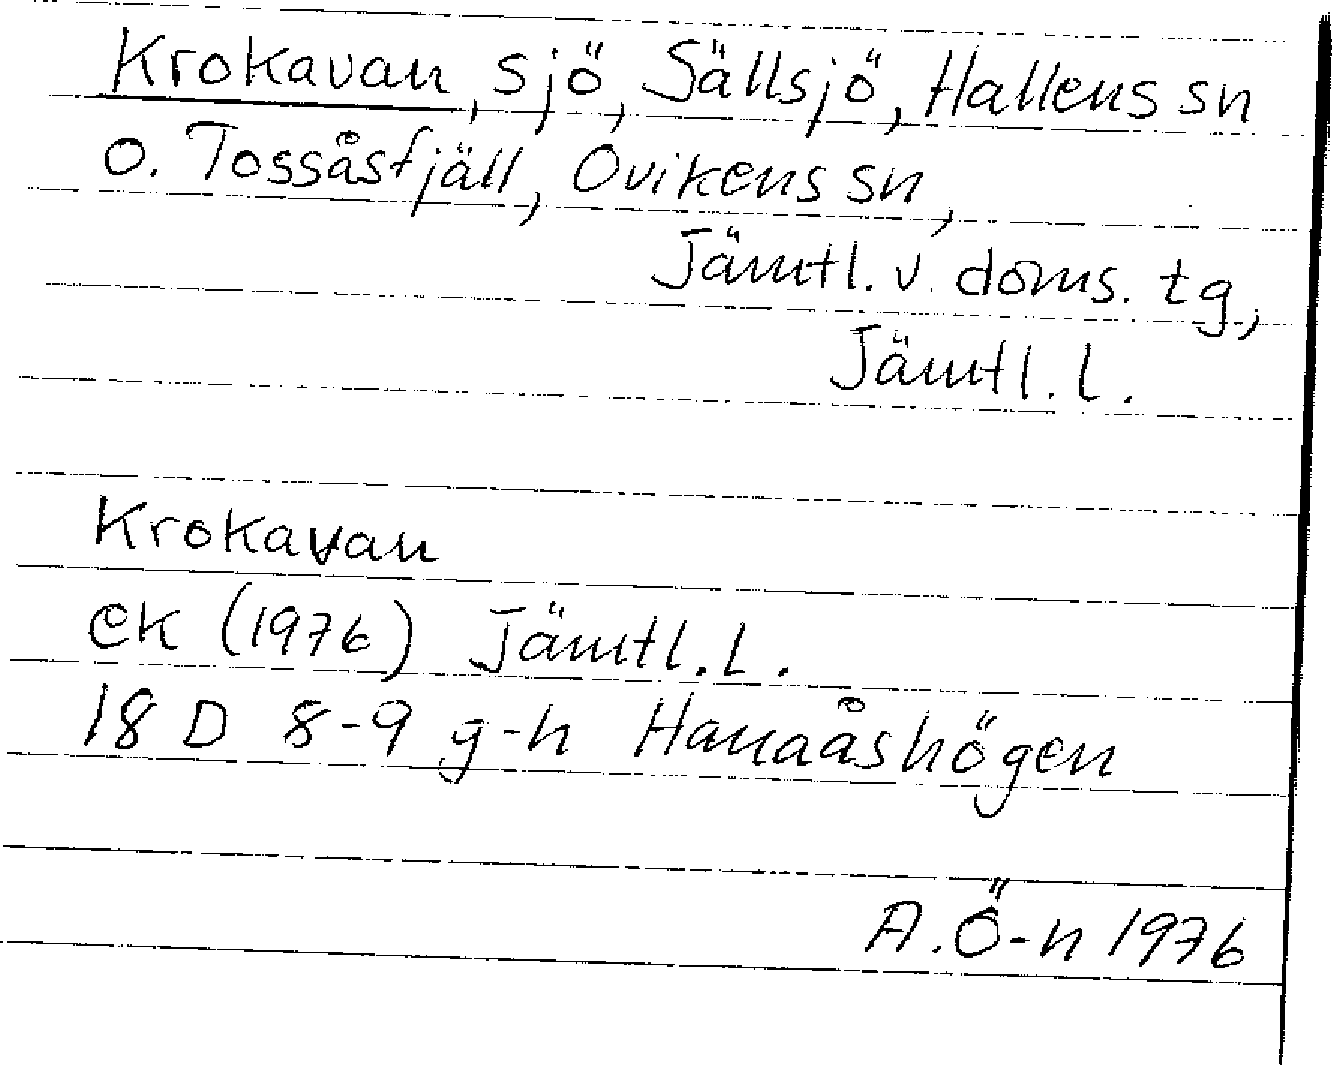 Krokavan, sjö, Sällsjö, Hallens sn
o. Tossåsfjäll, Ovikens sn,
Jämtl. v. doms. tg,
Jämtl. l.
Krokavan
ek (1976) Jämtl. l.
18 D 8-9 g-h Hanaåshögen
A. Ö-n 1976